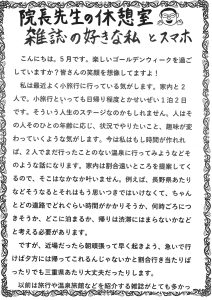 院長先生の休憩室
雑誌の好きな私とスマホ
こんにちは。5月です。楽しいゴールデンウィークを過ご
していますか？皆さんの笑顔を想像してますよ！
私は最近よく小旅行に行っている気がします。家内と2
人で。小旅行といっても日帰り程度とかせいぜい1泊2日
です。そういう人生のステージなのかもしれません。人はそ
の人そのひとの年齢に応じ、状況でやりたいこと、趣味が変
わっていくような気がします。今は私はもし時間が作れれ
ば、2人でまだ行ったことのない温泉に行ってみようなどそ
のような話になります。家内は割合遠いところを提案してく
るので、そこはなかなか叶いません。例えば、長野県あたり
などそうなるとそれはもう思いつきではいけなくて、ちゃん
とどの道路でどれぐらい時間がかかりそうか、何時ごろにつ
きそうか、どこに泊まるか、帰りは渋滞にはまらないかなど
と考える必要があります。
ですが、近場だったら朝頑張って早く起きよう、急いで行
けば夕方には帰ってこれるんじゃないかと割合行き当たりば
ったりでも三重県あたり大丈夫だったりします。
以前は旅行や温泉旅館などを紹介する雑誌がとても多かっ